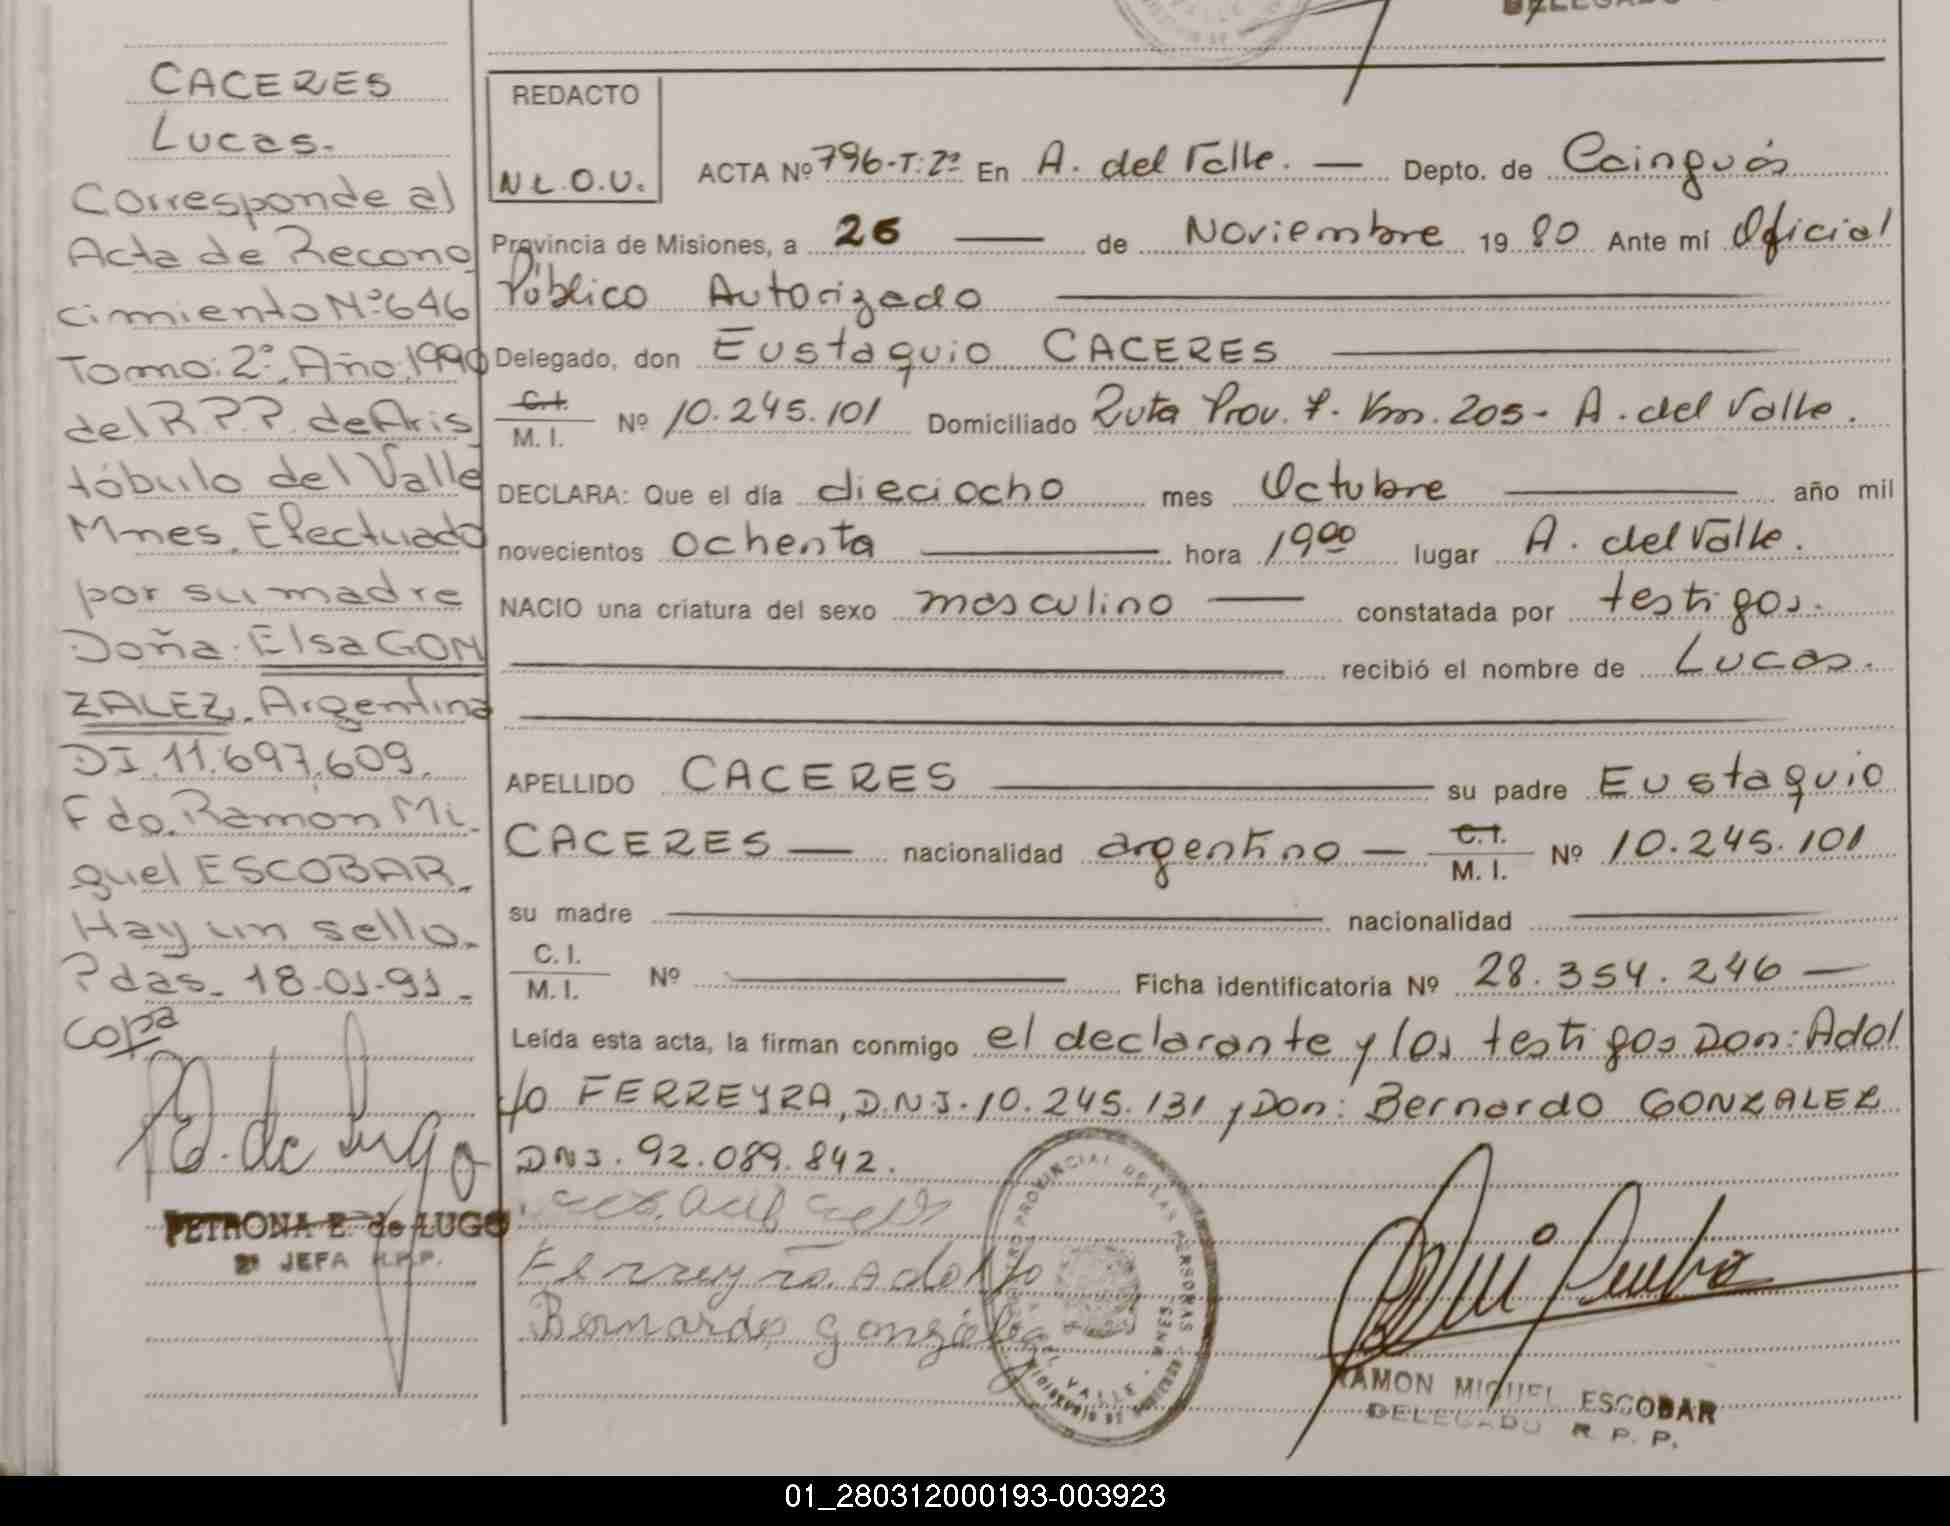 CACERES
Lucas.
Corresponde al
Acta de Recono
cimiento Nº 646
Tomo: 2º. Año 1990
del R.P.P. de Aris
tóbulo del Valle
Mnes. Efectuado
por su madre
Doña: Elsa GON
ZALEZ, Argentina
DI. 11.697.609.
Fdo. Ramon Mi
guel ESCOBAR.
Hay un sello.
Pdas. 18-01-91.
Copa
P.E. de Lugo
PETRONA E. de LUGO
2ª JEFA R.P.P.
DELEGADO
REDACTO
N L.O.U.
ACTA Nº 796-T:2º En A. del Valle. — Depto. de Cainguás
Provincia de Misiones, a 26 — de Noviembre 19 80 Ante mí Oficial
Público Autorizado
Delegado, don Eustaquio CACERES
C.I. / M. I. Nº 10.245.101 Domiciliado Ruta Prov. 7. Km. 205- A. del Valle.
DECLARA: Que el día dieciocho mes Octubre — año mil
novecientos ochenta — hora 19 00 lugar A. del Valle.
NACIO una criatura del sexo masculino — constatada por testigos.
— recibió el nombre de Lucas.
APELLIDO CACERES — su padre Eustaquio
CACERES — nacionalidad argentino — C.I. / M. I. Nº 10.245.101
su madre — nacionalidad —
C. I. / M. I. Nº — Ficha identificatoria Nº 28.354.246 —
Leída esta acta, la firman conmigo el declarante y los testigos Don: Adol
fo FERREYRA, D.N.I. 10.245.131 y Don: Bernardo GONZALEZ
DNI. 92.089.842.
Ferreyra Adolfo
Bernardo González
REGISTRO PROVINCIAL DE LAS PERSONAS
DEL VALLE - MNES
RAMON MIGUEL ESCOBAR
DELEGADO R. P. P.
01_280312000193-003923